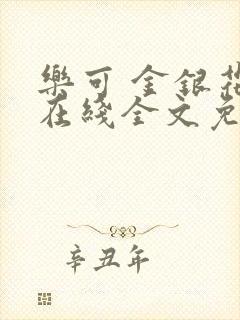 樂可 金銀花
在綫全文免
辛丑年